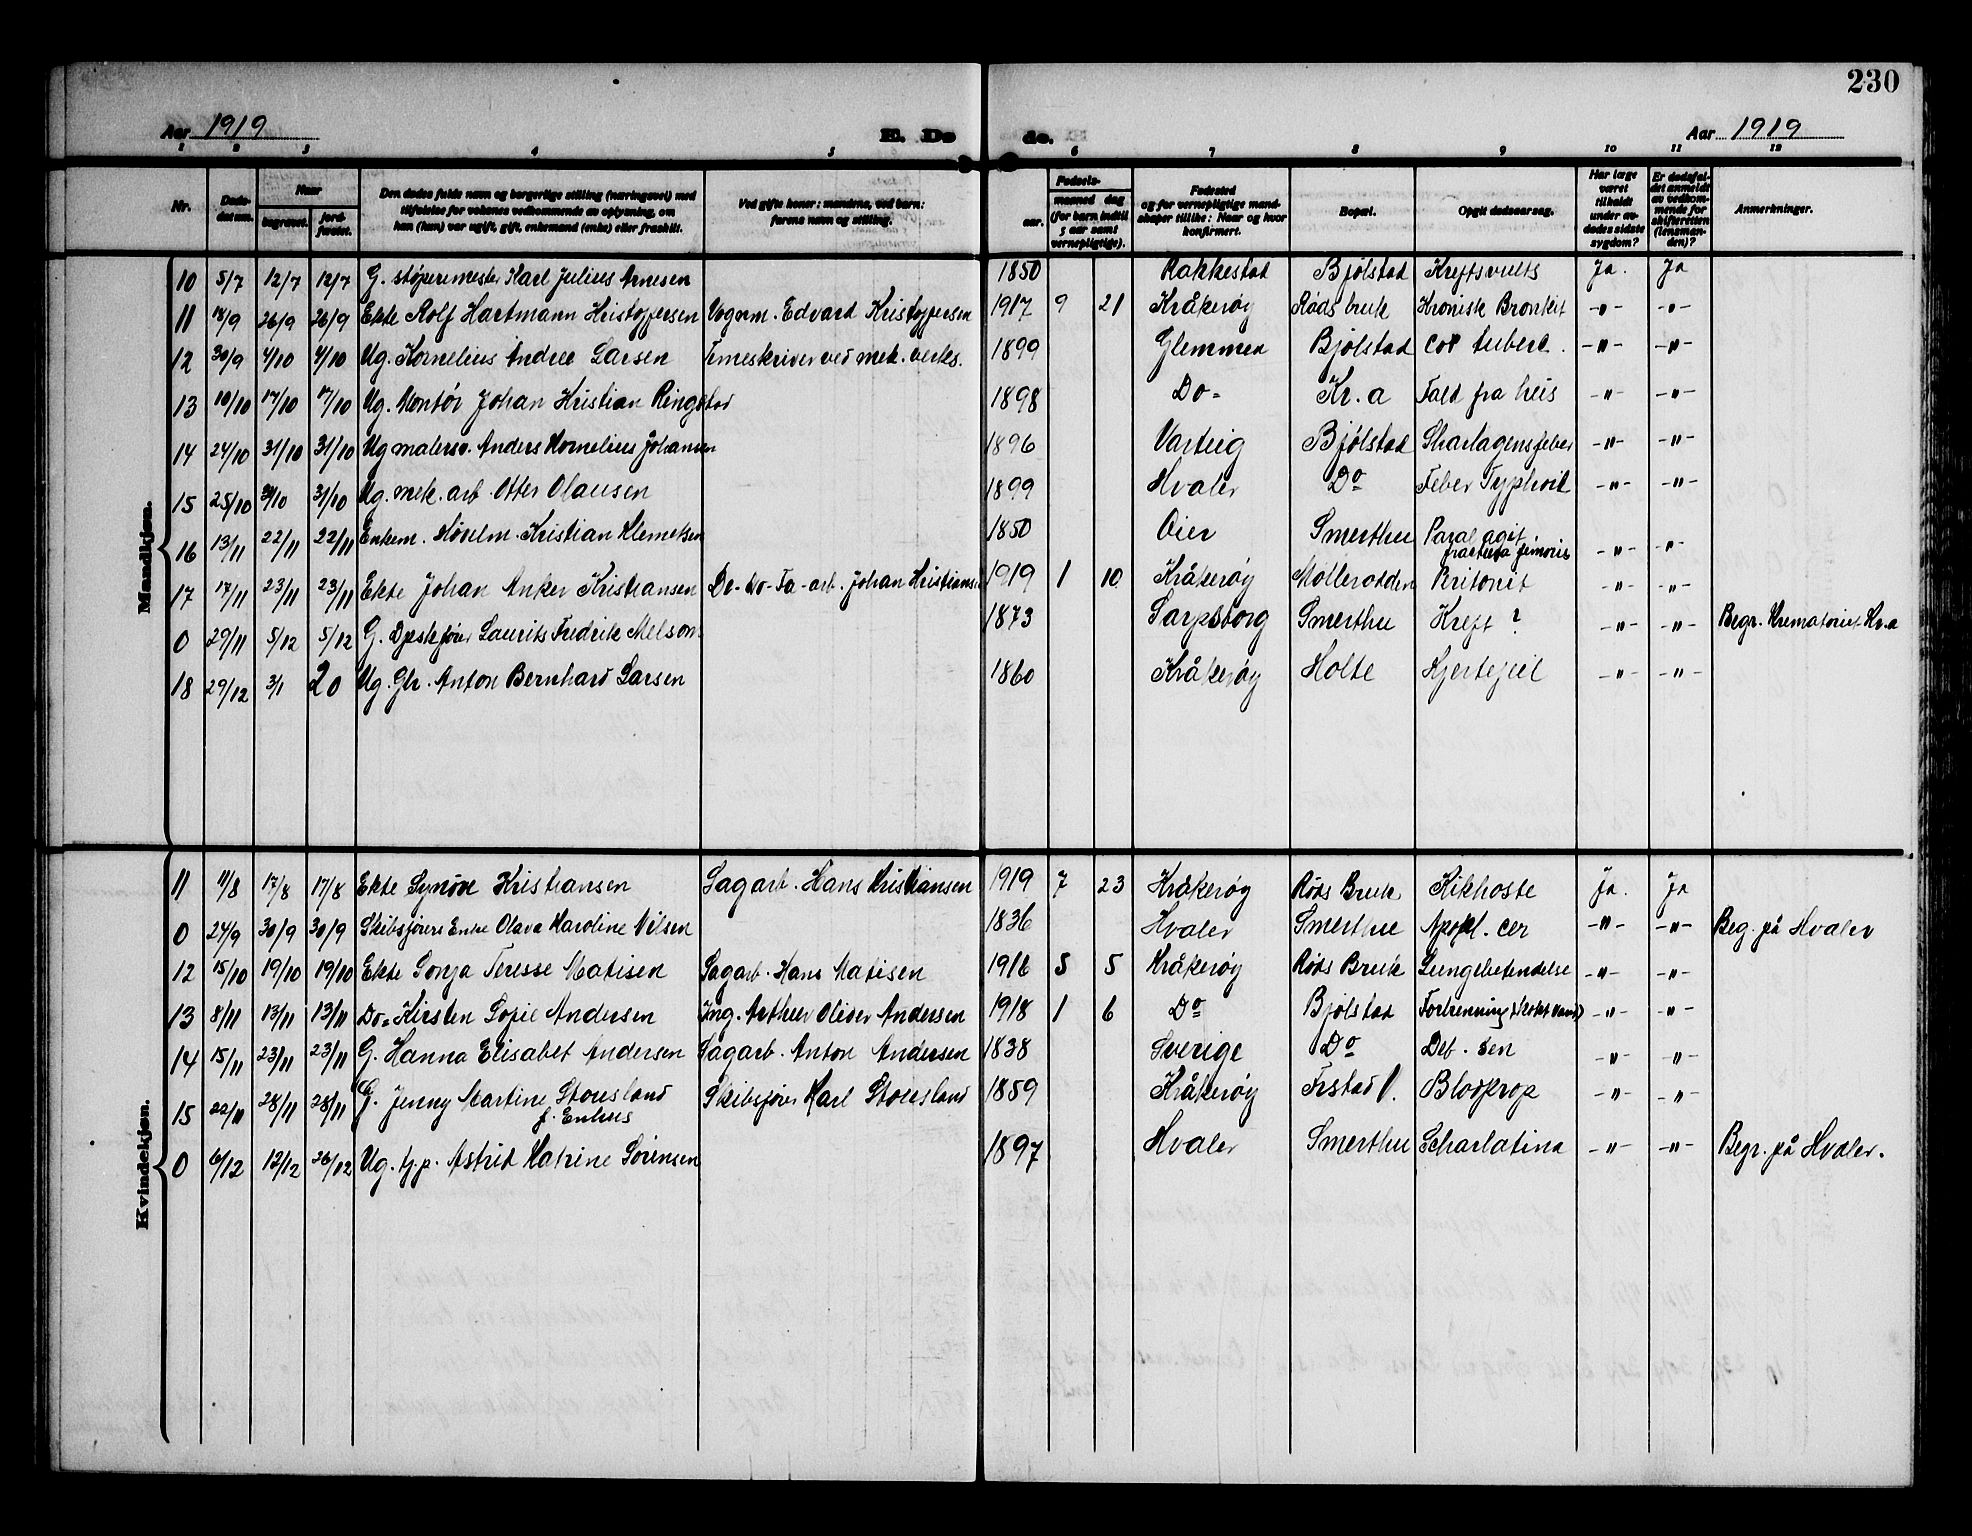 230
Aar 1919 E. Dø
de. Aar 1919
1 2 3 4 5 6 7 8 9 10 11 12
Nr. Døds-datum. Naar begravet. jord-fæstet. Den dødes fulde navn og borgerlige stilling (næringsvei) med tilføielse for voksnes vedkommende av oplysning, om han (hun) var ugift, gift, enkemand (enke) eller fraskilt. Ved gifte koner: mandens, ved barn: farens navn og stilling. Fødsels- aar. maaned dag (for barn indtil 5 aar samt vernepligtige). Fødested og for vernepligtige mandskaper tillike: Naar og hvor konfirmert. Bopæl. Opgit dødsaarsag. Har læge været tilkaldt under avdødes sidste sygdom? Er dødsfaldet anmeldt av vedkommende for skifteretten (lensmanden)? Anmerkninger.
Mandkjøn.
10 5/7 12/7 12/7 G. støperimester Karl Julius Arnesen 1850 Rakkestad Bjølstad Kreftsvulst Ja. Ja
11 18/9 26/9 26/9 Ekte Rolf Hartmann Kristoffersen Vognm. Edvard Kristoffersen 1917 9 21 Kråkerøy Røds bruk Kronisk Bronkit -"- -"-
12 30/9 4/10 4/10 Ug. Kornelius Andree Larsen Timeskriver ved mek. verks. 1899 Glemmen Bjølstad Cor tuberc. -"- -"-
13 10/10 17/10 17/10 Ug. Montør Johan Kristian Ringstad 1898 Do- Kr.a Fald fra hus -"- -"-
14 24/10 31/10 31/10 Ug malersv. Anders Kornelius Johansen 1896 Varteig Bjølstad Skarlagensfeber -"- -"-
15 25/10 31/10 31/10 Ug. mek. arb. Otter Olausen 1899 Hvaler Do Feber Typhoid -"- -"-
16 13/11 22/11 22/11 Enkem. Høvelm. Kristian Klemetsen 1850 Oier Smerthu Paral agit -"- -"-
fractura femoris
17 17/11 23/11 23/11 Ekte Johan Anker Kristiansen Do-do-Fa-arb. Johan Kristiansen 1919 1 10 Kråkerøy Møllerodden Peritonit -"- -"-
0 29/11 5/12 5/12 G. Laurits Fredrik Melsom 1873 Sarpsborg Smerthu Kreft? -"- -"- Begr. Krematoriet Kr.a
18 29/12 3/1 20 Ug. Gbr. Anton Bernhard Larsen 1860 Kråkerøy Holte Hjertefeil -"- -"-
Kvindekjøn.
11 11/8 17/8 17/8 Ekte Synøve Kristiansen Sagarb. Hans Kristiansen 1919 7 23 Kråkerøy Røds Bruk Kikhoste Ja. Ja
0 24/9 30/9 30/9 Skibsførers Enke Olava Karoline Nilsen 1836 Hvaler Smerthu Apopl. cer -"- -"- Beg. på Hvaler
12 15/10 19/10 19/10 Ekte Sonja Teresse Matisen Sagarb. Hans Matisen 1916 5 5 Kråkerøy Røds Bruk Lungebetendelse -"- -"-
13 8/11 13/11 13/11 Do- Kirsten Sofie Andersen Ing. Arthur Oliver Andersen 1918 1 6 Do Bjølstad Forbrenning (kokt vand) -"- -"-
14 15/11 23/11 23/11 G. Hanna Elisabet Andersen Sagarb. Anton Andersen 1838 Sverige Do Deb. sen -"- -"-
15 22/11 28/11 28/11 G. Jenny Martine Storesland Skibsfører Karl Storesland 1859 Kråkerøy Frstad V. Blodprop -"- -"-
f. Enhus
0 6/12 12/12 26/12 Ug. tj.p. Astrid Katrine Sørensen 1897 Hvaler Smerthu Scharlatina -"- -"- Begr. på Hvaler.